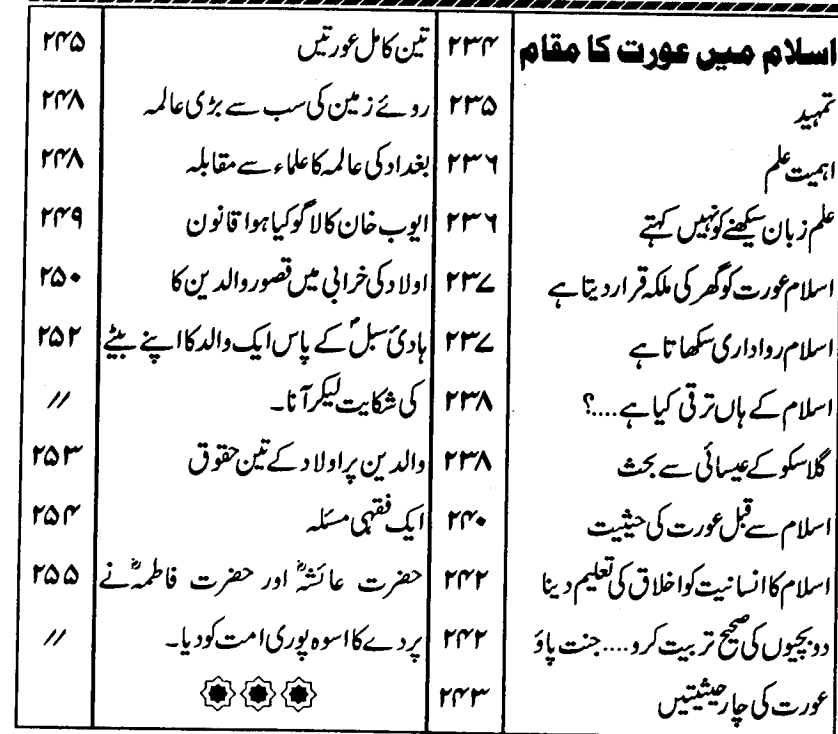 اسلام میں عورت کا مقام ۲۳۴
تمہید ۲۳۵
اہمیت علم ۲۳۶
علم زبان سیکھنے کو نہیں کہتے ۲۳۶
اسلام عورت کو گھر کی ملکہ قرار دیتا ہے ۲۳۷
اسلام رواداری سکھاتا ہے ۲۳۷
اسلام کے ہاں ترقی کیا ہے....؟ ۲۳۸
گلاسکو کے عیسائی سے بحث ۲۳۸
اسلام سے قبل عورت کی حیثیت ۲۴۰
اسلام کا انسانیت کو اخلاق کی تعلیم دینا ۲۴۲
دو بچیوں کی صحیح تربیت کرو....جنت پاؤ ۲۴۲
عورت کی چار حیثیتیں ۲۴۳
تین کامل عورتیں ۲۴۵
روئے زمین کی سب سے بڑی عالمہ ۲۴۸
بغداد کی عالمہ کا علماء سے مقابلہ ۲۴۸
ایوب خان کا لاگو کیا ہوا قانون ۲۴۹
اولاد کی خرابی میں قصور والدین کا ۲۵۰
ہادئ سبلؐ کے پاس ایک والد کا اپنے بیٹے ۲۵۲
کی شکایت لیکر آنا۔ //
والدین پر اولاد کے تین حقوق ۲۵۳
ایک فقہی مسئلہ ۲۵۴
حضرت عائشہؓ اور حضرت فاطمہؓ نے ۲۵۵
پردے کا اسوہ پوری امت کو دیا۔ //